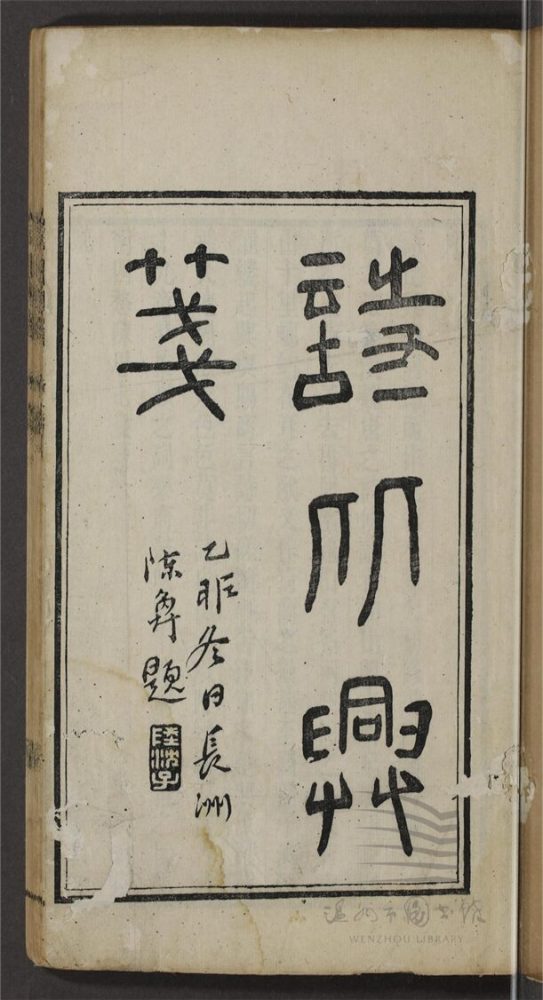 詩比興
箋
乙卯冬日長洲
陳奐題
温州市圖书馆
WENZHOU LIBRARY